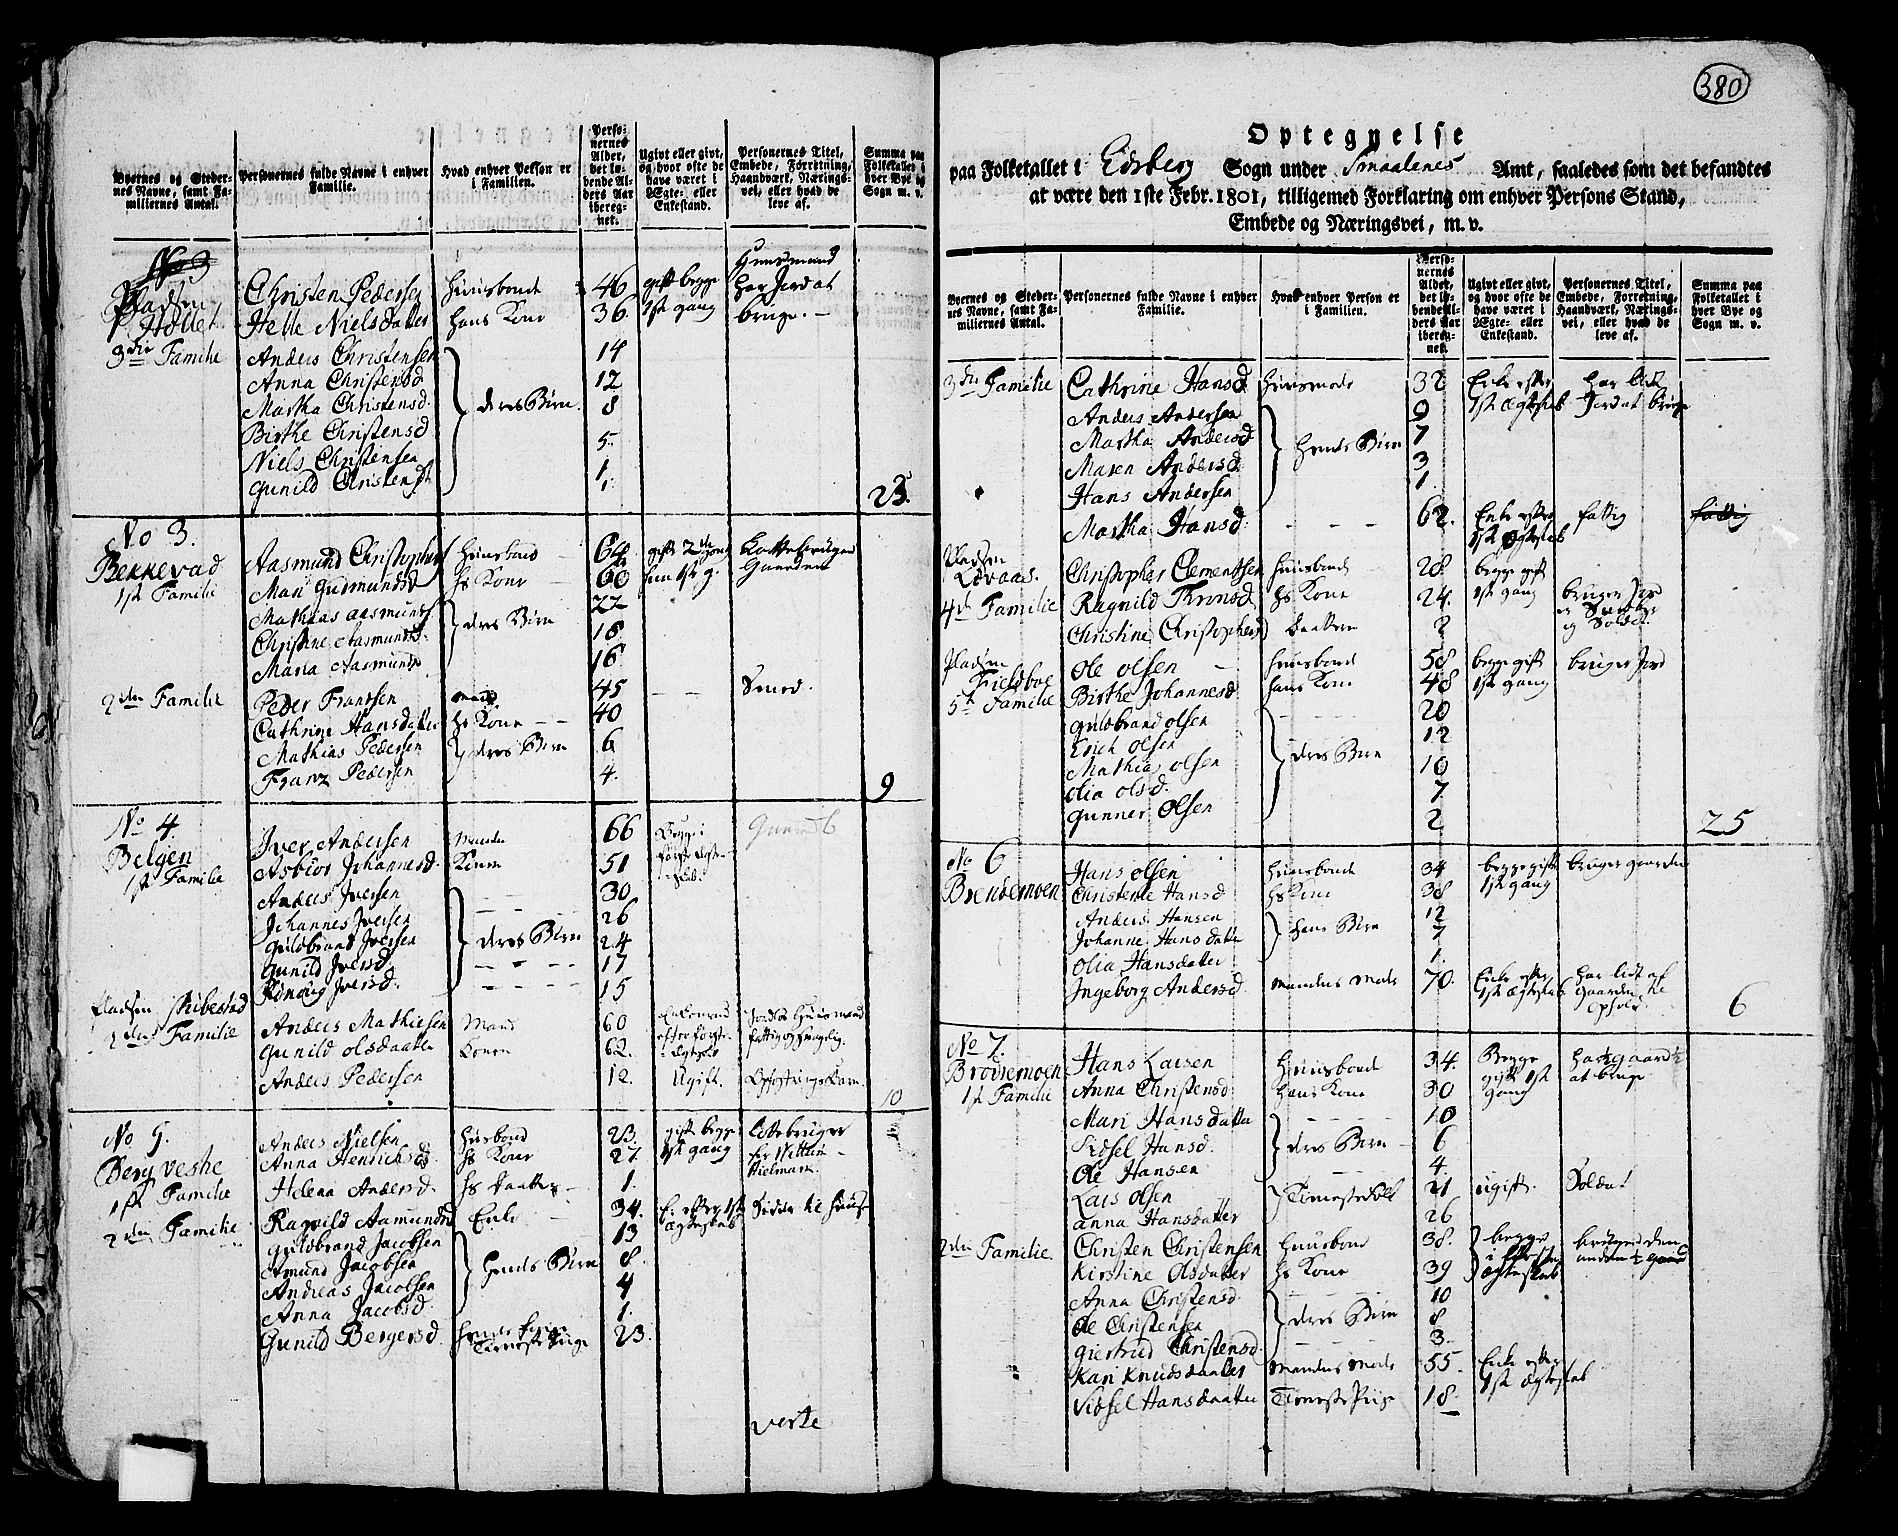 Byernes og Stedernes Navne, samt Familiernes Antal.
Personernes fulde Navne i enhver Familie.
Hvad enhver Person er i Familien.
Personernes Alder, det løbende Alders Aar iberegnet.
Ugivt eller givt, og hvor ofte de have været i Ægte- eller Enkestand.
Personernes Titel, Embede, Forretning, Haandværk, Næringsvei, eller hvad de leve af.
Summa paa Folketallet i hver Bye og Sogn m. v.
No 3
Huusmand
Pladsen Christen Pedersen Huusbonde 46 gift begge har Jord at
Hollet Helle Nielsdatter hans Kone 36 1st gang bruge.
3die Familie Anders Christensen 14
Anna Christensd 12
Martha Christensd. deres Børn 8
Birthe Christensd 5
Niels Christensen 1.
Gunild Christensd
23.
No 3.
Bekkevad Aasmund Christophers Huusbond 64 gift 2de gang
1st Familie Mari Gudmundsd hs Kone 60 hun 1st g. Gaarden
Mathias Aasmunds 22
Christine Aasmundsd. deres Børn 18
Maria Aasmundsd 16
2den Familie Peder Frantsen Mand 45 Smed.
Cathrine Hansdatter hs Kone 40
Mathias Pedersen deres Børn 6
Franz Pedersen 4.
9
No 4.
Belgen Iver Andersen Manden 66 Begge i
1st Familie Asbiør Johannesd. Konen 51 første Ægte-
Anders Iversen 30
Johannes Iversen 26
Guldbrand Iversen deres Børn 24
Gunild Iversd. 17
Iversd. 15
Pladsen Ribestad Anders Mathiesen Mand 60 Enkemand Jordløs Huusmand
2den Familie Gunild Olsdaatter Konen 62. efter første fattig og svagelig.
Anders Pedersen 12. Ugift. Opfostringsbarn.
10
No 5.
Berg vestre Anders Nielsen Husbond 23. gift begge
1st Familie Anna Henrichsd hs Kone 27. 1st gang
Helena Andersd. hs Daatter 1.
2den Familie Ragnild Aamundsd Enke 34. E. efter 1st Ægteskab Sidder til Huus
Guldbrand Jacobsen 13
Amund Jacobsen hendes Børn 8.
Andreas Jacobsen 4
Anna Jacobsd. 1.
Gunild Bergersd. Tieneste Pige 23.
verte
380
Optegnelse
paa Folketallet i Edsberg Sogn under Smaalenes Amt, saaledes som det befandtes
at være den 1ste Febr. 1801, tilligemed Forklaring om enhver Persons Stand,
Embede og Næringsvei, m. v.
Byernes og Stedernes Navne, samt Familiernes Antal.
Personernes fulde Navne i enhver Familie.
Hvad enhver Person er i Familien.
Personernes Alder, det løbende Alders Aar iberegnet.
Ugivt eller givt, og hvor ofte de have været i Ægte- eller Enkestand.
Personernes Titel, Embede, Forretning, Haandværk, Næringsvei, eller hvad de leve af.
Summa paa Folketallet i hver Bye og Sogn m. v.
3die Familie Cathrine Hansd Huusmoder 32 Enke efter har lidt
Anders Andersen 9 1st Ægteskab Jord at bruge
Martha Andersd 7
Maren Andersd. hendes Børn 3
Hans Andersen 1
Martha Hansd. 62. Enke efter 1st Ægteskab fattig fattig
Pladsen
Christopher Clementsen Huusbonde 28. begge gift
4de Familie Ragnild Thronsd hs Kone 24. 1st gang bruger Jord
Christine Christophersd Daatter 2 og Soldat.
Pladsen Ole Olsen Huusbonde 58 begge gift bruger Jord
Fieldboe Birthe Johannesd. hans Kone 48 1st gang
5te Familie Guldbrand Olsen 20
Erich Olsen 12
Mathias Olsen deres Børn 10
Olia Olsd. 7
Gunner Olsen 2
25
No 6 Hans Olsen Huusbonde 34 begge gift bruger gaarden
Brendemoen Christense Hansd hs Kone 38 1st gang
Anders Hansen 12
Johanne Hansdatter hans Børn 7
Olia Hansdatter 1.
Ingeborg Andersd. Mandens Moder 70. Enke efter 1st Ægteskab har lidt af gaarden til Ophold.
6
No 7. Hans Larsen Huusbonde 34. Begge har ½ gaard
Broviemoen Anna Christensd hans Kone 30 gift 1st at bruge
1st Familie gang
Mari Hansdatter 10
Sidsel Hansd. deres Børn 6
Ole Hansen 4.
Lars Olsen Tienestefolk 21 ugift. Soldat
Anna Hansdatter 26
2den Familie. Christen Christensen Huusbond 38. begge bruger den
Kirstine Olsdatter hs Kone 39 i første Ægteskab anden ½ gaard
Anna Christensd. 10
Ole Christensen deres Børn 8
Giertrud Christensd. 3.
Kari Knudsdaatter Mandens Moder 55. Enke efter
Sidsel Hansdaatter Tieneste Pige 18. 1st Ægteskab